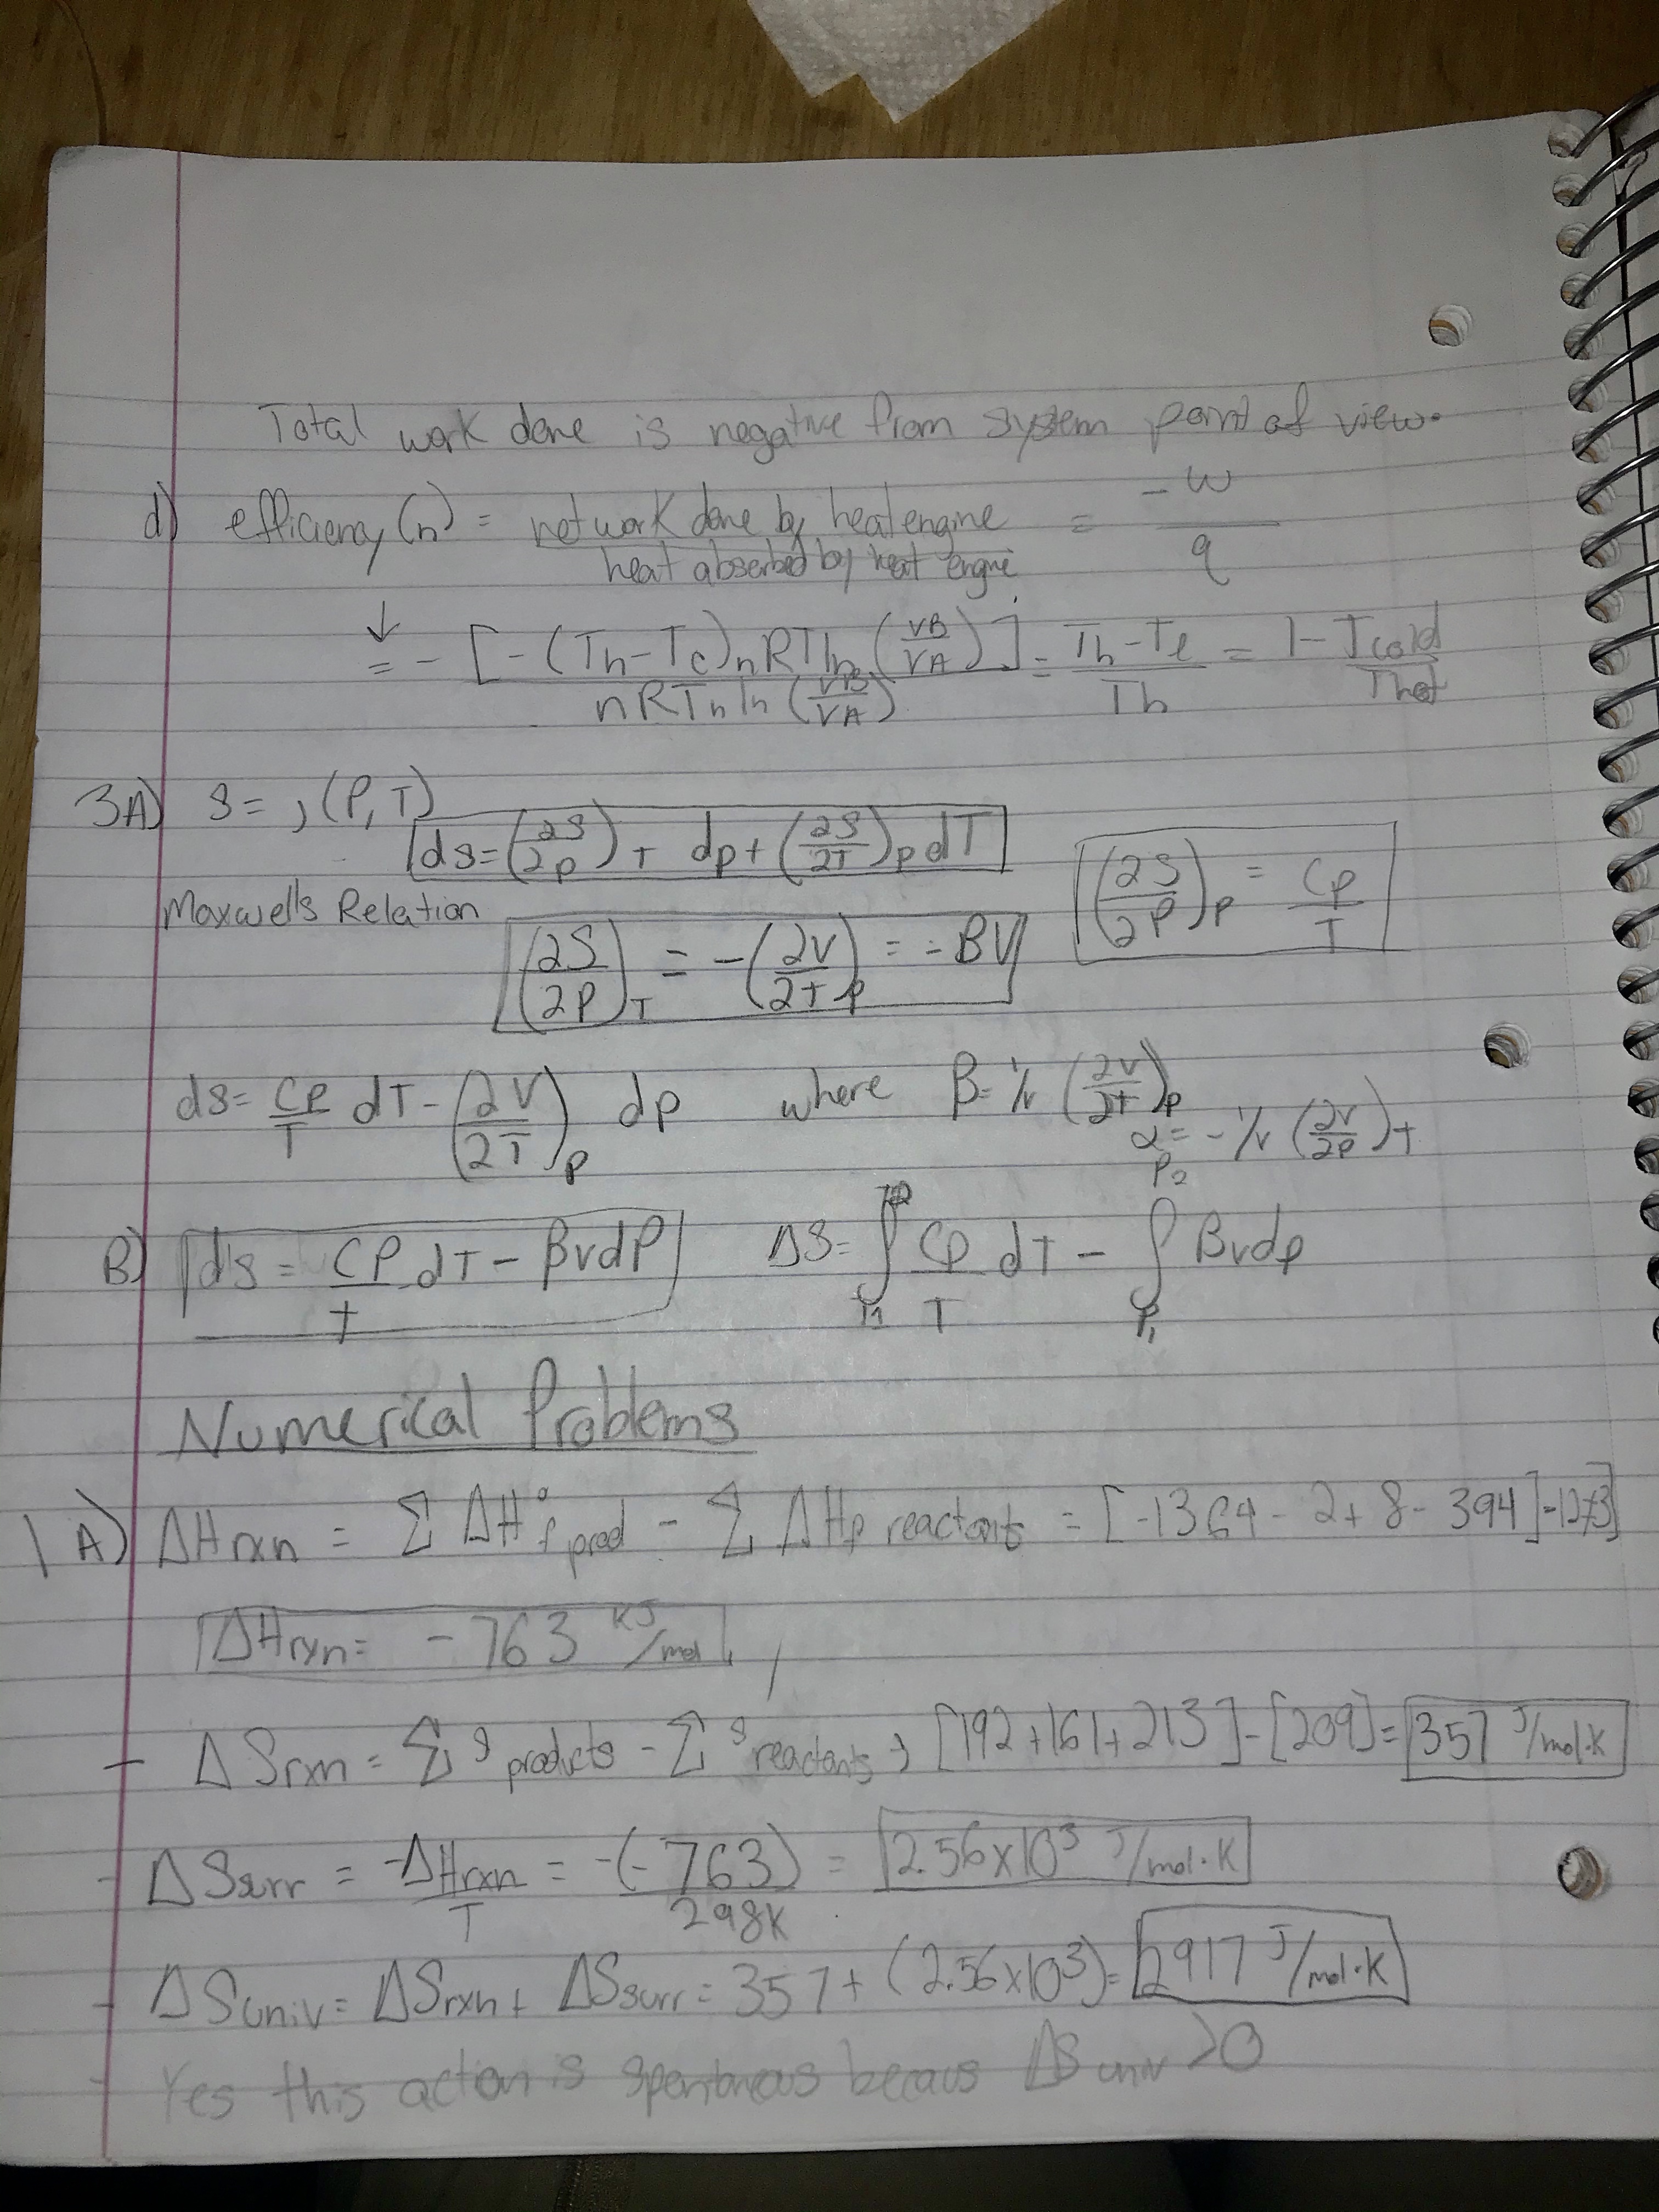 Total work done is negative from system point of view.
d) efficiency (n) = net work done by heat engine / heat absorbed by heat engine = -w / q
↓ = - [-(Th-Tc)nRTln(VB/VA)] / nRTh ln(VB/VA) = Th-Tc / Th = 1 - Tcold / Thot
3A) S= , (P, T)
ds=(∂S/∂p)T dp + (∂S/∂T)p dT
(∂S/∂P)P = CP / T
Maxwells Relation
(∂S/∂P)T = -(∂V/∂T)P = -BV
ds= CP/T dT - (∂V/∂T)p dp where β= 1/v (∂V/∂T)p
α= - 1/v (∂V/∂P)T
B) ds = CP/T dT - βvdP ΔS= ∫T1 CP/T dT - ∫P1 P2 Bvdp
Numerical Problems
1A) ΔHrxn = Σ ΔH°f prod - Σ ΔHf reactants = [-1364 - 2+8- 394]-
ΔHrxn= -763 KJ/mol
- ΔSrxn = Σ S products - Σ S reactants , [192+161+213]-[209]= 357 J/mol·K
- ΔSsurr = -ΔHrxn / T = -(-763) / 298K = 2.56x10³ J/mol·K
- ΔSuniv= ΔSrxn + ΔSsurr = 357+ (2.56x10³)= 2917 J/mol·K
- Yes this action is spontaneous becaus ΔS univ >0